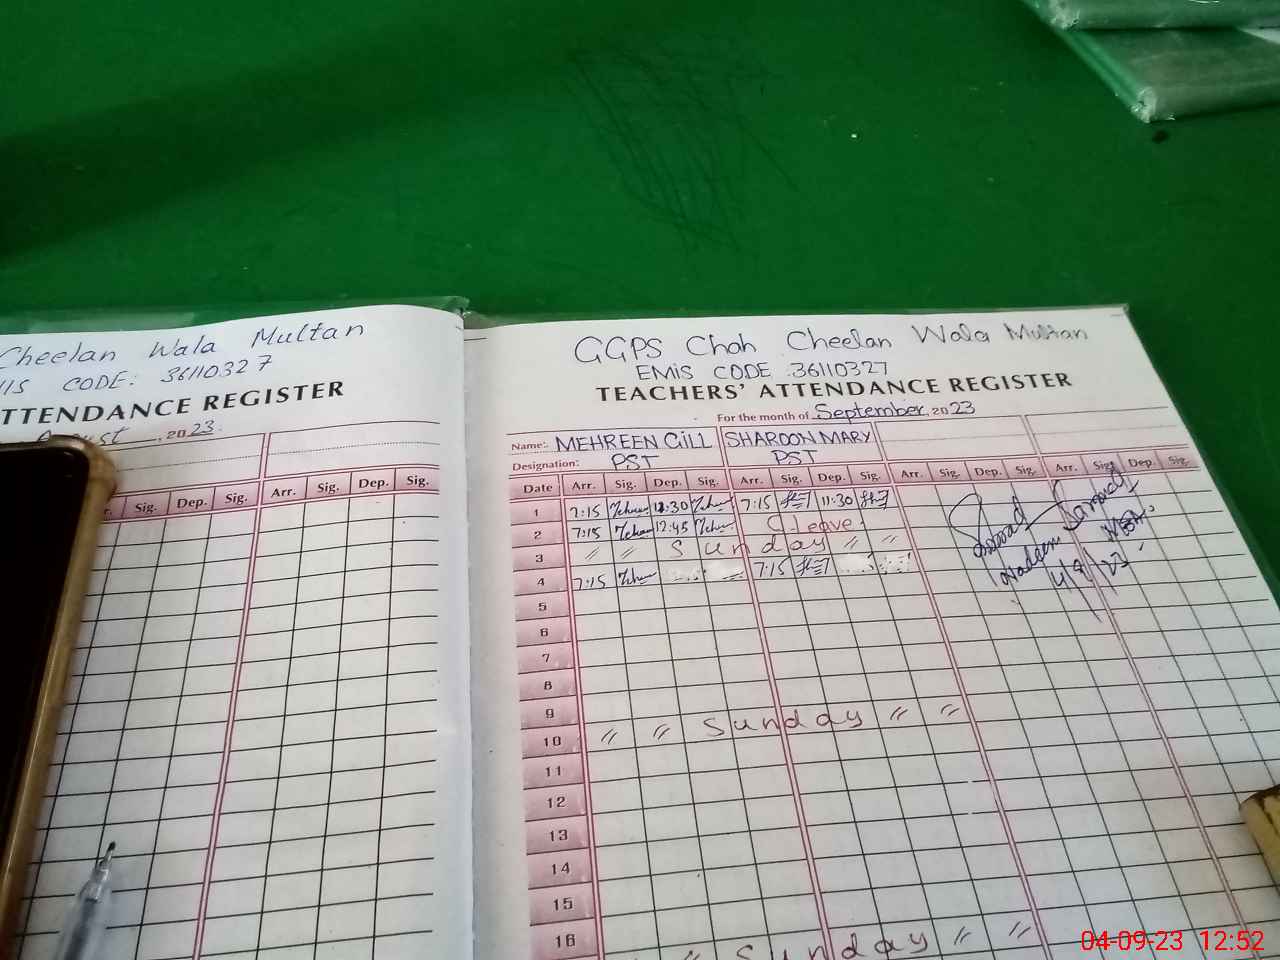 Cheelan Wala Multan
CODE: 36110327
TTENDANCE REGISTER
, 20 23.
Sig. Dep. Sig. Arr. Sig. Dep. Sig.
GGPS Chah Cheelan Wala Multan
EMIS CODE 36110327
TEACHERS' ATTENDANCE REGISTER
For the month of September, 20 23
Name: MEHREEN GILL SHAROON MARY
Designation: PST PST
Date Arr. Sig. Dep. Sig. Arr. Sig. Dep. Sig. Arr. Sig. Dep. Sig. Arr. Sig. Dep. Sig.
1 7:15 12:30 7:15 11:30
2 7:15 12:45 C.Leave
3 〃 〃 Sunday 〃 〃
4 7:15 7:15
5
6
7
8
9
10 〃 〃 Sunday 〃 〃
11
12
13
14
15
16
Sunday 〃 〃
Nadeem
4/9/23
04-09-23 12:52